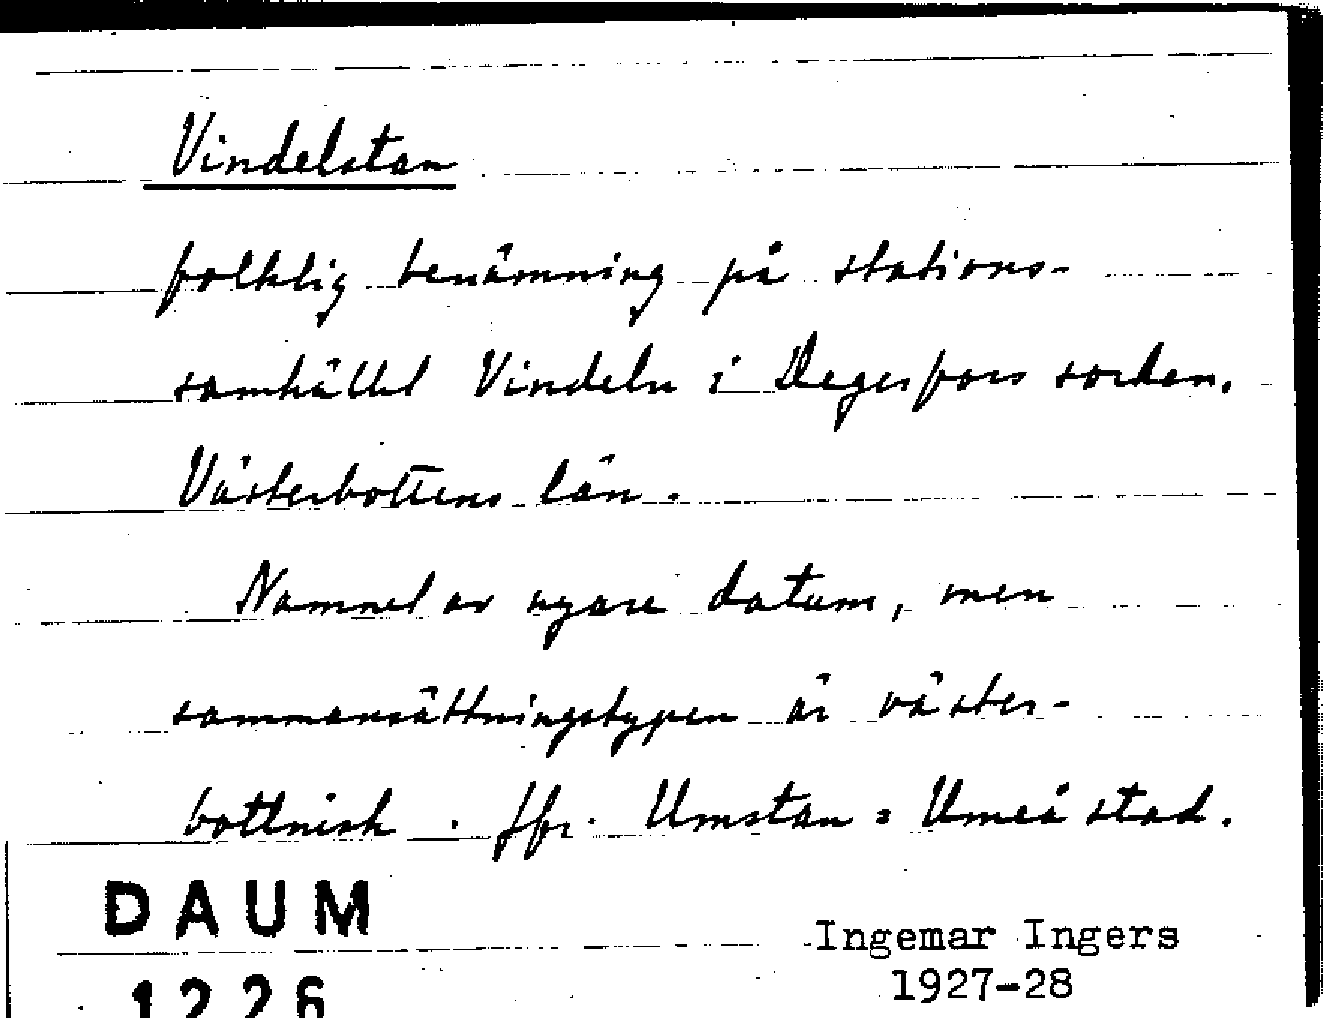 Vindelstan
folklig benämning på stations-
samhället Vindeln i Degerfors socken.
Västerbottens län.
Namnet av nyare datum, men
sammansättningstypen är väster-
bottnisk. Jfr. Umstan = Umeå stad.
DAUM
Ingemar Ingers
1226
1927-28